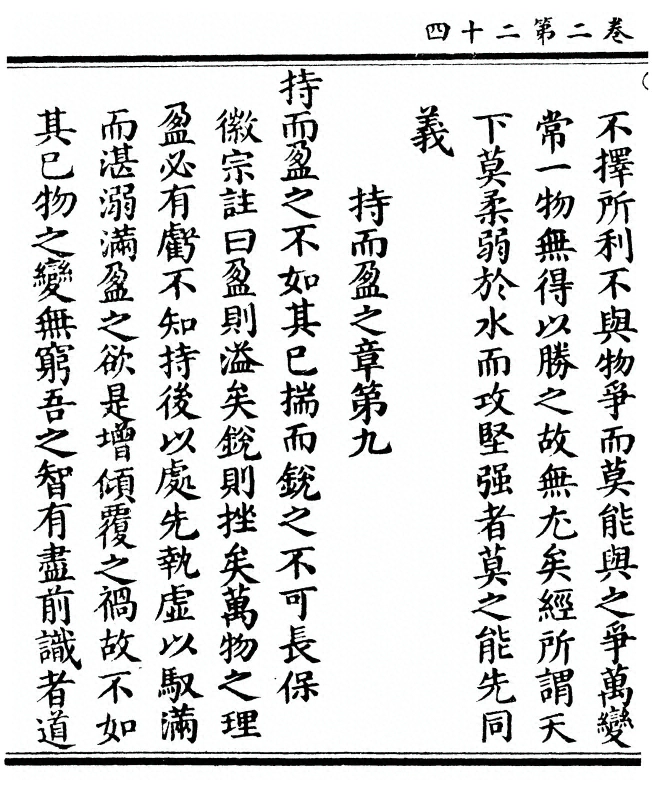 卷二第二十四
不擇所利不與物爭而莫能與之爭萬變
常一物無得以勝之故無尤矣經所謂天
下莫柔弱於水而攻堅强者莫之能先同
義
持而盈之章第九
持而盈之不如其已揣而銳之不可長保
徽宗註曰盈則溢矣銳則挫矣萬物之理
盈必有虧不知持後以處先執虛以馭滿
而湛溺滿盈之欲是增傾覆之禍故不如
其已物之變無窮吾之智有盡前識者道